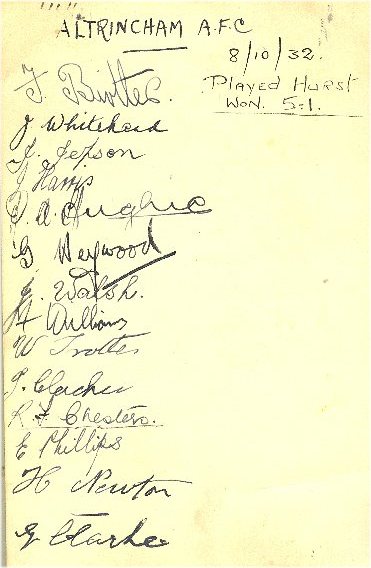 ALTRINCHAM A.F.C
8/10/32.
PLAYED HURST
WON. 5-1.
J Whitehead
J. Jepson
J Harris
A. Hughes
G Heywood
E. Walsh.
A Williams
W Trotter
J. Clacher
R F Chesters.
E Phillips
H Newton
G Clarke